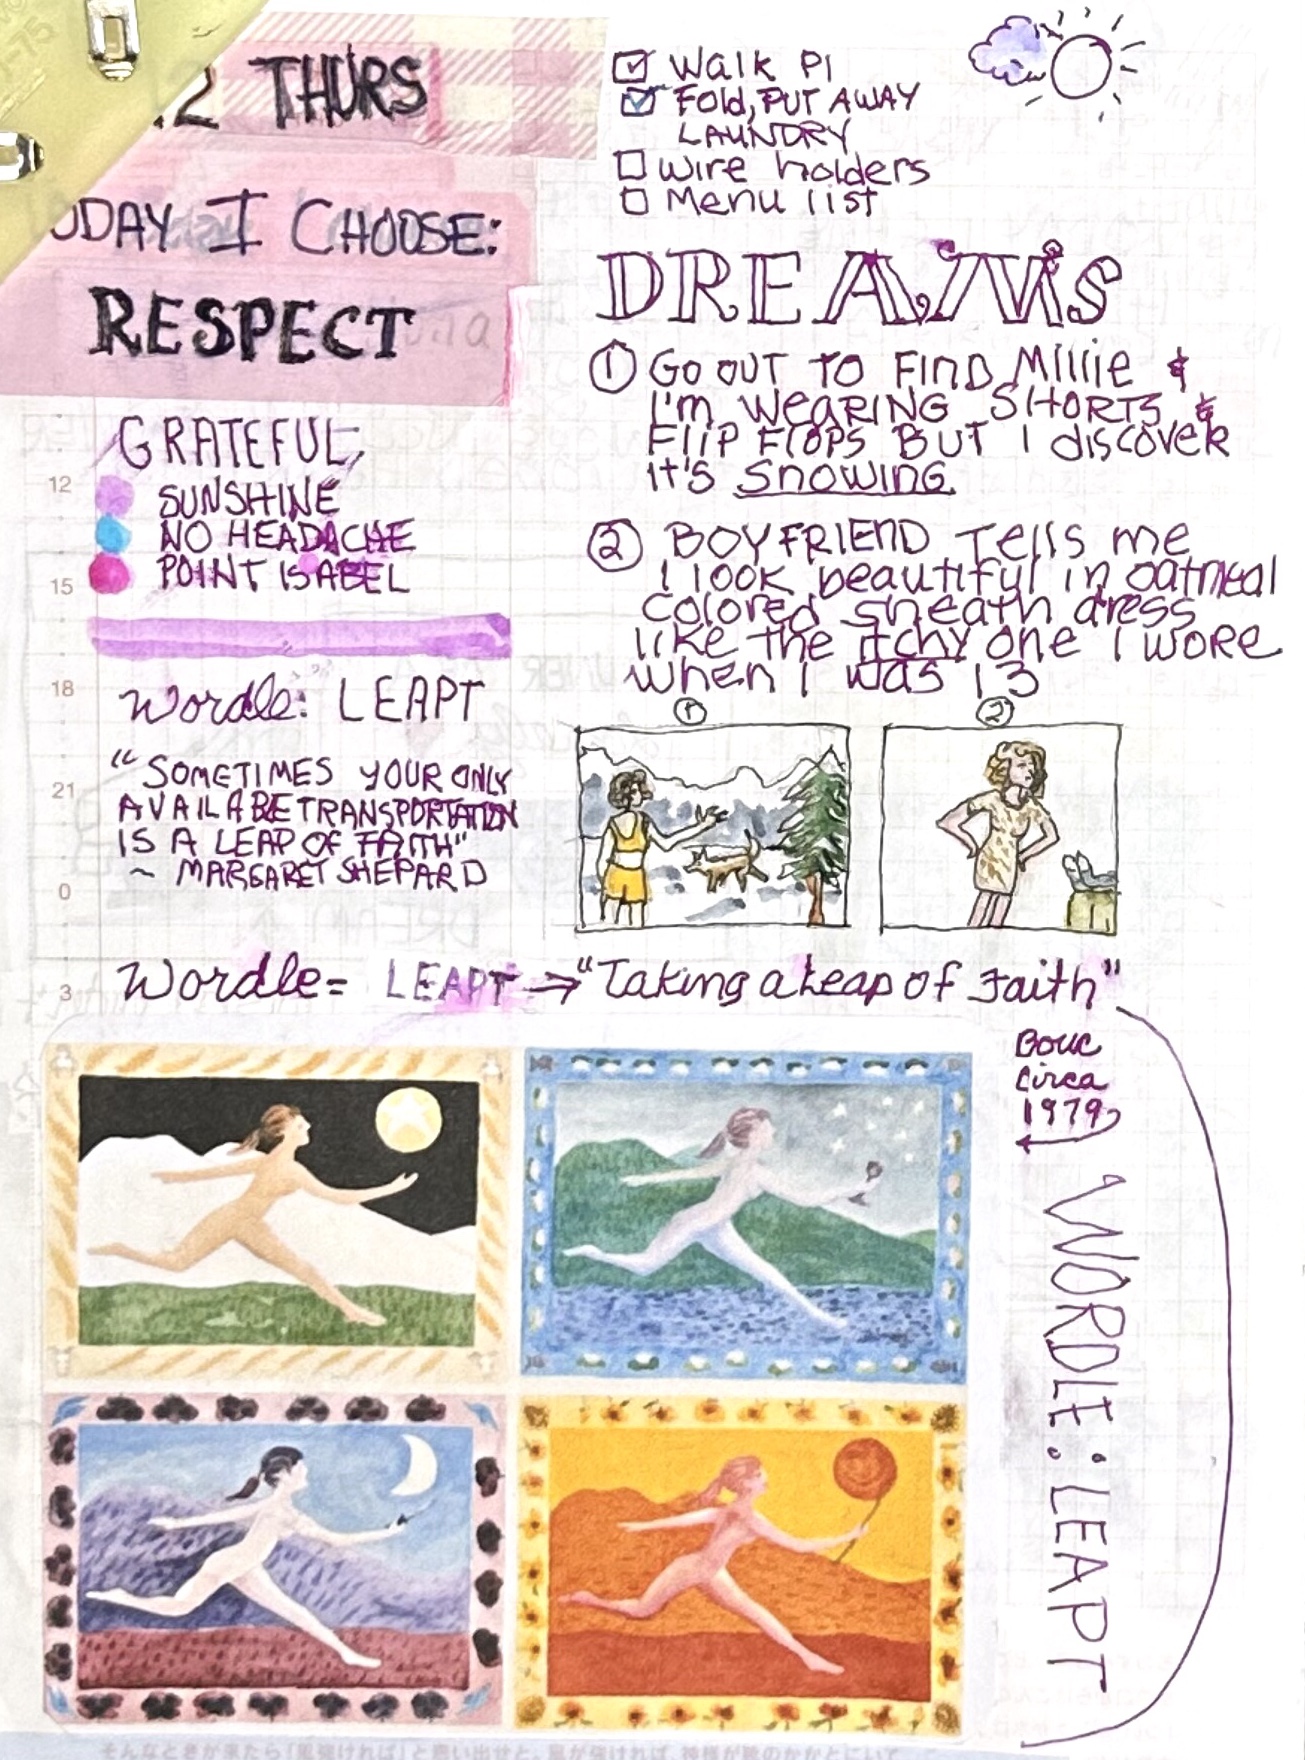 2 THURS
ODAY I CHOOSE:
RESPECT
GRATEFUL
SUNSHINE
NO HEADACHE
POINT ISABEL
Wordle: LEAPT
"SOMETIMES YOUR ONLY
AVAILABE TRANSPORTATION
IS A LEAP OF FAITH"
~ MARGARET SHEPARD
12
15
18
21
0
3
Walk PI
Fold, PUT AWAY
LAUNDRY
wire holders
Menu list
DREAMS
① GO OUT TO FIND Millie &
I'm WEARING SHORTS &
Flip Flops BUT I discover
it's snowing
② BOYFRIEND Tells me
I look beautiful in oatmeal
colored sheath dress
like the itchy one I wore
when I was 13
① ②
Wordle = LEAPT → "Taking a Leap of Faith"
circa
1979
WORDLE: LEAPT